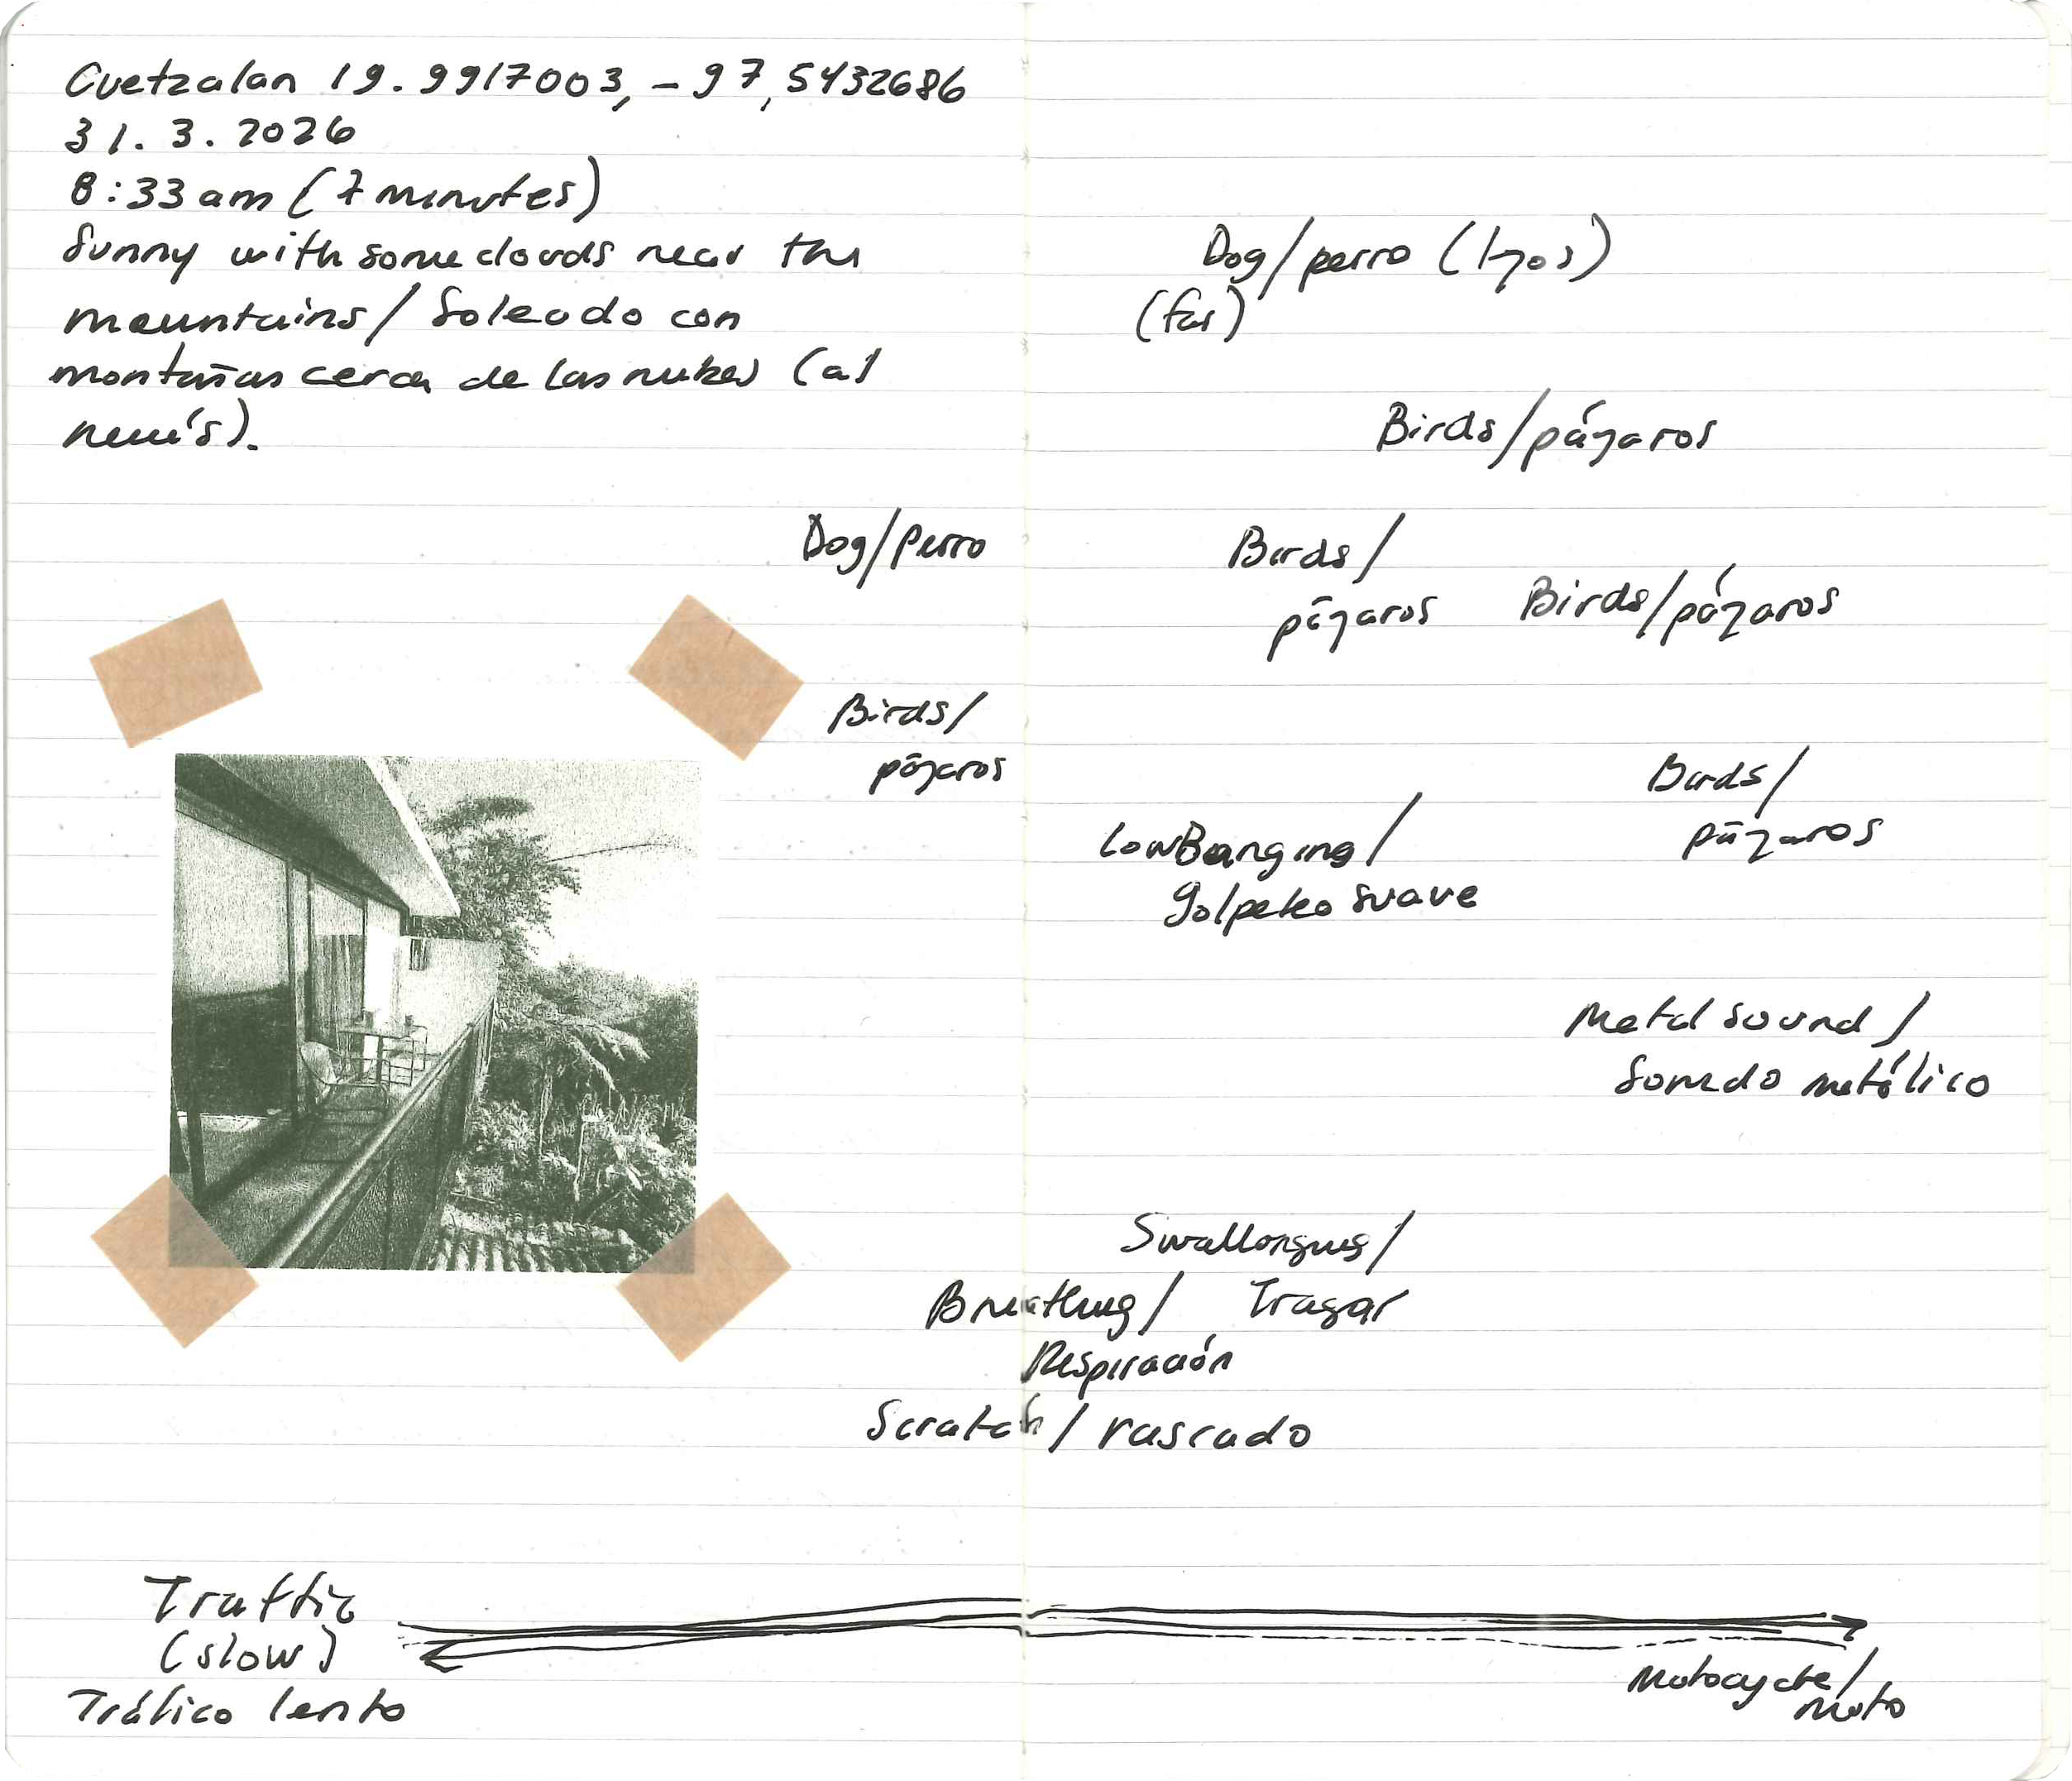 Cuetzalan 19.9917003, -97,5432686
31.3.2026
8:33am (7 minutes)
Sunny with some clouds near the
mountains / Soleado con
montañas cerca de las nubes (al
revés).
Dog/perro (lejos)
(far)
Birds/pájaros
Dog/Perro
Birds/
pájaros
Birds/pájaros
Birds/
pájaros
Birds/
pájaros
Low Banging/
golpeteo suave
Metal sound/
Sonido metálico
Swallowing/
Tragar
Breathing/
Respiración
Scratch/rascado
Traffic
(slow)
Tráfico lento
Motocycle/
moto